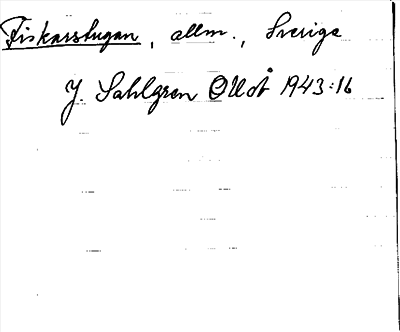 Fiskarstugan, allm., Sverige
J. Sahlgren OUoÅ 1943:16